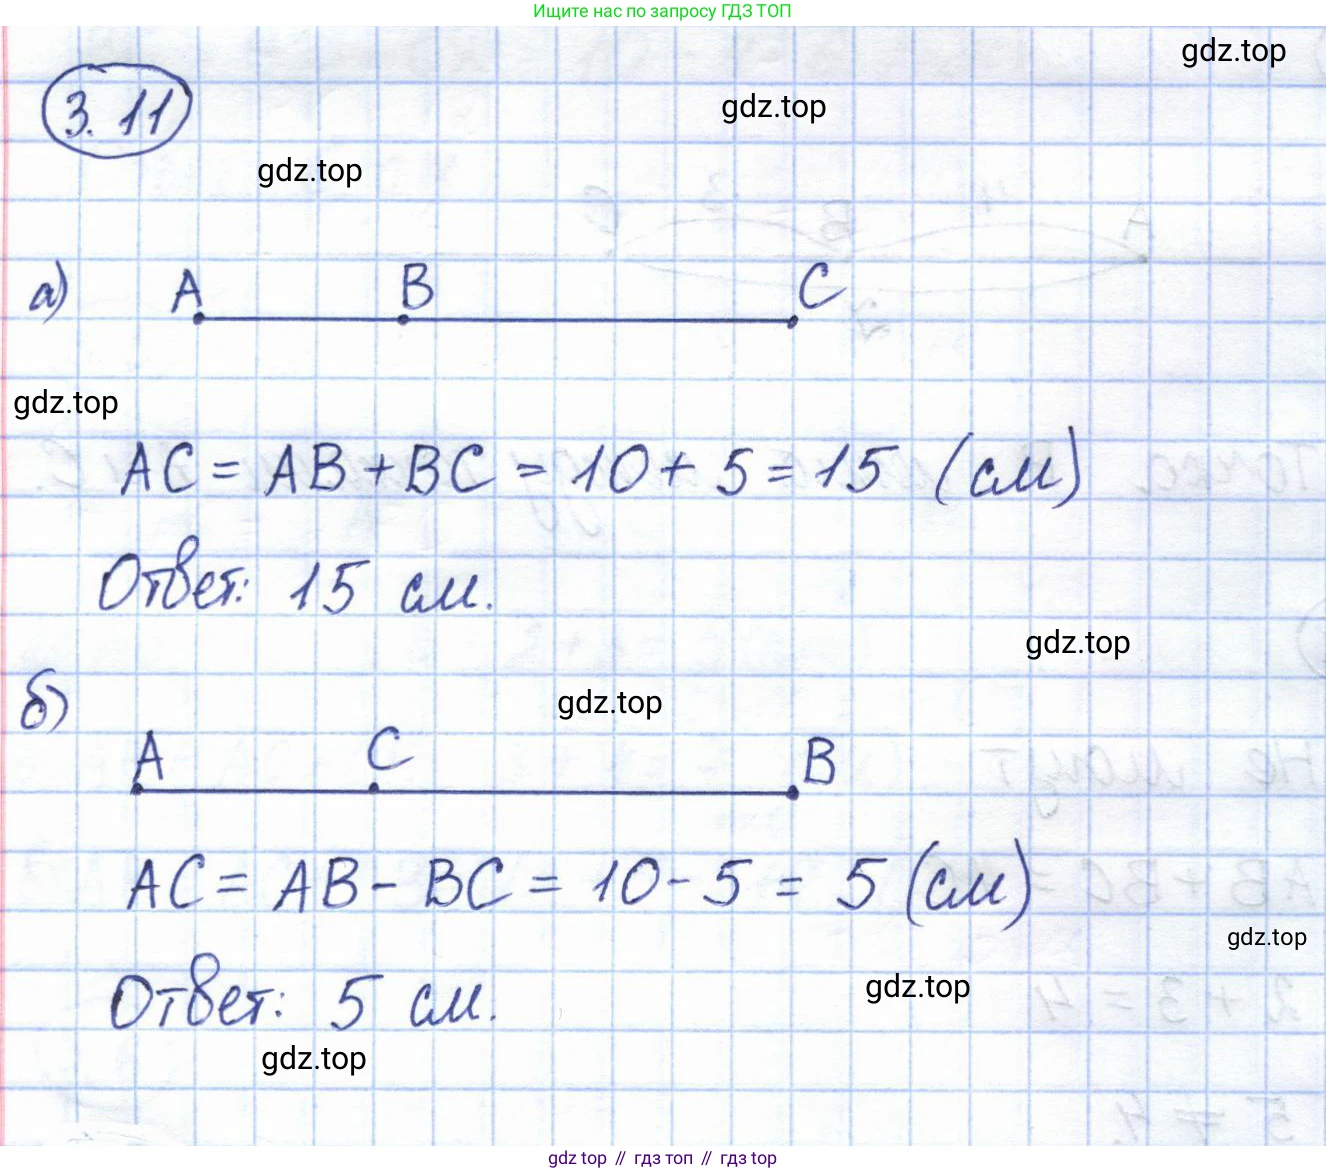 Ищите нас по запросу ГДЗ ТОП
gdz.top
3.11
gdz.top
gdz.top
а)
A B C
gdz.top
AC = AB + BC = 10 + 5 = 15 (см)
Ответ: 15 см.
gdz.top
б)
gdz.top
A C B
AC = AB - BC = 10 - 5 = 5 (см)
gdz.top
Ответ: 5 см.
gdz.top
gdz.top
gdz top // гдз топ // гдз top